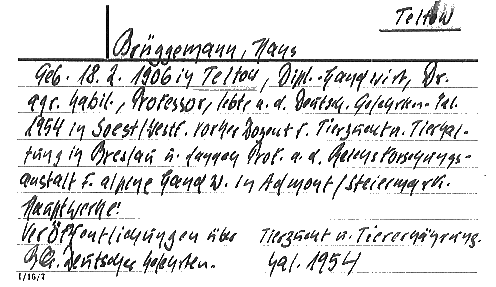 Teltow
Brüggemann, Hans
Geb. 18.2. 1906 in Teltow, Dipl.-Landwirt, Dr.
agr. habil., Professor, lebte a. d. Deutsch. Gelehrten-Kal.
1954 in Soest/Westf. vorher Dozent f. Tierzucht u. Tierhal-
tung in Breslau u. Prof. a. d. Reichsforschungs-
anstalt f. alpine Landw. in Admont/Steiermark.
Hauptwerke:
Veröffentlichungen über Tierzucht u. Tierernährung.
Deutscher Gelehrten. Kal. 1954
1/16/7